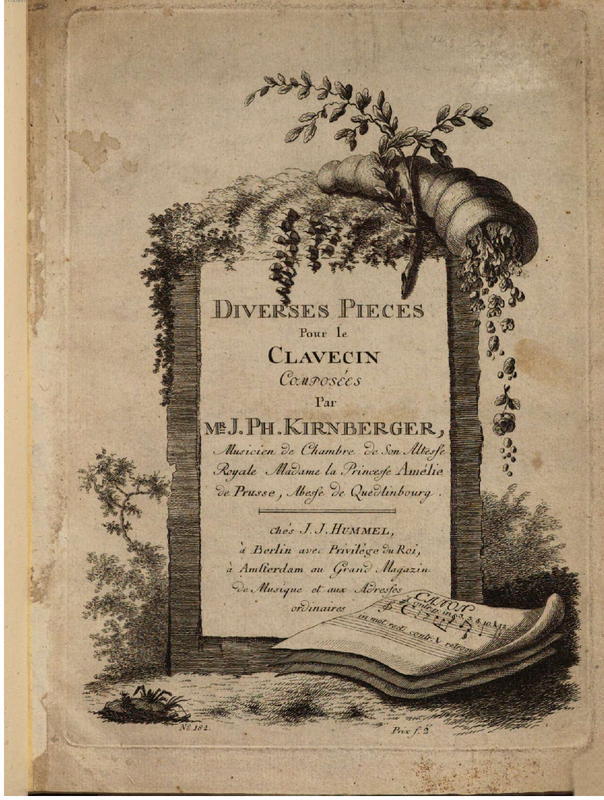 DIVERSES PIECES
Pour le
CLAVECIN
COMPOSÉES
Par
MR. J. PH. KIRNBERGER,
Musicien de Chambre de Son Altesse
Royale Madame la Princesse Amélie
de Prusse, Abesse de Quedlinbourg.
chés J. J. HUMMEL,
à Berlin avec Privilége du Roi,
à Amsterdam au Grand Magazin
de Musique et aux Adresses
ordinaires
CANON
in mot. rect. contr. retrog.
No. 182.
Prix f. 2